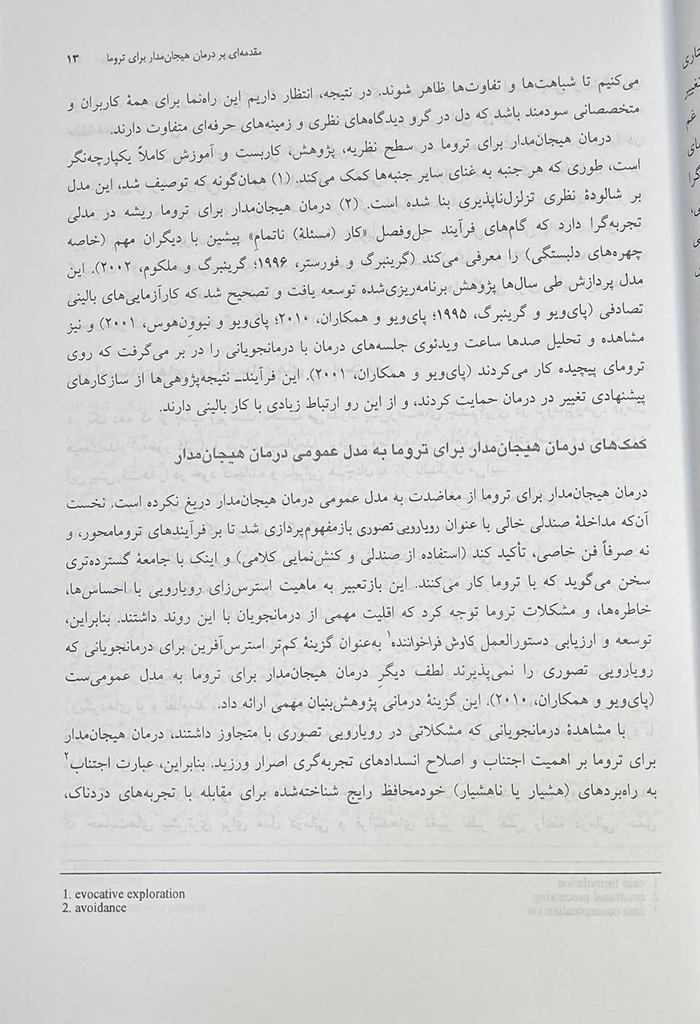 مقدمه‌ای بر درمان هیجان‌مدار برای تروما ۱۳
می‌کنیم تا شباهت‌ها و تفاوت‌ها ظاهر شوند. در نتیجه، انتظار داریم این راه‌نما برای همهٔ کاربران و
متخصصانی سودمند باشد که دل در گرو دیدگاه‌های نظری و زمینه‌های حرفه‌ای متفاوت دارند.
درمان هیجان‌مدار برای تروما در سطح نظریه، پژوهش، کاربست و آموزش کاملاً یکپارچه‌نگر
است، طوری که هر جنبه به غنای سایر جنبه‌ها کمک می‌کند. (۱) همان‌گونه که توصیف شد، این مدل
بر شالودهٔ نظری تزلزل‌ناپذیری بنا شده است. (۲) درمان هیجان‌مدار برای تروما ریشه در مدلی
تجربه‌گرا دارد که گام‌های فرآیند حل‌وفصل «کار (مسئلهٔ) ناتمامِ» پیشین با دیگران مهم (خاصه
چهره‌های دلبستگی) را معرفی می‌کند (گرینبرگ و فورستر، ۱۹۹۶؛ گرینبرگ و ملکوم، ۲۰۰۲). این
مدل پردازش طی سال‌ها پژوهش برنامه‌ریزی‌شده توسعه یافت و تصحیح شد که کارآزمایی‌های بالینی
تصادفی (پای‌ویو و گرینبرگ، ۱۹۹۵؛ پای‌ویو و همکاران، ۲۰۱۰؛ پای‌ویو و نیوون‌هوس، ۲۰۰۱) و نیز
مشاهده و تحلیل صدها ساعت ویدئوی جلسه‌های درمان با درمانجویانی را در بر می‌گرفت که روی
ترومای پیچیده کار می‌کردند (پای‌ویو و همکاران، ۲۰۰۱). این فرآیندـ نتیجه‌پژوهی‌ها از سازکارهای
پیشنهادی تغییر در درمان حمایت کردند، و از این رو ارتباط زیادی با کار بالینی دارند.
کمک‌های درمان هیجان‌مدار برای تروما به مدل عمومی درمان هیجان‌مدار
درمان هیجان‌مدار برای تروما از معاضدت به مدل عمومی درمان هیجان‌مدار دریغ نکرده است. نخست
آن‌که مداخلهٔ صندلی خالی با عنوان رویارویی تصوری بازمفهوم‌پردازی شد تا بر فرآیندهای تروما‌محور، و
نه صرفاً فن خاصی، تأکید کند (استفاده از صندلی و کنش‌نمایی کلامی) و اینک با جامعهٔ گسترده‌تری
سخن می‌گوید که با تروما کار می‌کنند. این بازتعبیر به ماهیت استرس‌زای رویارویی با احساس‌ها،
خاطره‌ها، و مشکلات تروما توجه کرد که اقلیت مهمی از درمانجویان با این روند داشتند. بنابراین،
توسعه و ارزیابی دستورالعمل کاوش فراخواننده¹ به‌عنوان گزینهٔ کم‌تر استرس‌آفرین برای درمانجویانی که
رویارویی تصوری را نمی‌پذیرند لطف دیگرِ درمان هیجان‌مدار برای تروما به مدل عمومی‌ست
(پای‌ویو و همکاران، ۲۰۱۰). این گزینهٔ درمانی پژوهش‌بنیان مهمی ارائه داد.
با مشاهدهٔ درمانجویانی که مشکلاتی در رویارویی تصوری با متجاوز داشتند، درمان هیجان‌مدار
برای تروما بر اهمیت اجتناب و اصلاح انسدادهای تجربه‌گری اصرار ورزید. بنابراین، عبارت اجتناب²
به راه‌بردهای (هشیار یا ناهشیار) خودمحافظ رایج شناخته‌شده برای مقابله با تجربه‌های دردناک،
1. evocative exploration
2. avoidance